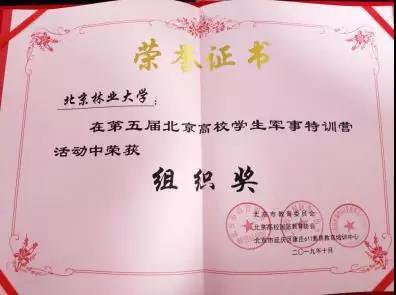 荣誉证书
北京林业大学：
在第五届北京高校学生军事特训营
活动中荣获
组织奖
北京市教育委员会
北京高校国防教育协会
北京市延庆区康庄611素质教育培训中心
二〇一九年十月